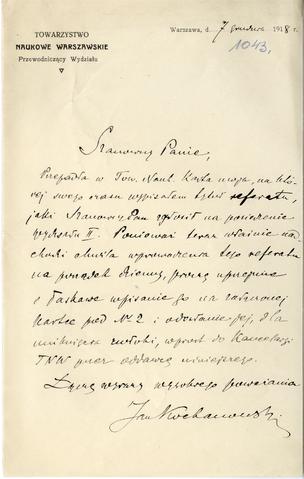 TOWARZYSTWO
NAUKOWE WARSZAWSKIE
Przewodniczący Wydziału
Warszawa, d. 7 grudnia 1918 r.
1043.
Szanowny Panie,
Przepadła w Tow. Nauk. Kartka moja, na któ-
rej swego czasu wypisałem tytuł referatu,
jaki Szanowny Pan zgłosił na posiedzenie
wydziału II. Ponieważ teraz właśnie nad-
chodzi chwila wprowadzenia tego referatu
na porządek dzienny, proszę uprzejmie
o łaskawe wpisanie go na załączonej
kartce pod № 2 i odesłanie jej, dla
uniknięcia zwłoki, wprost do Kancelarji
TNW przez oddawcę niniejszego.
Łączę wyrazy wysokiego poważania
Jan Kochanowski